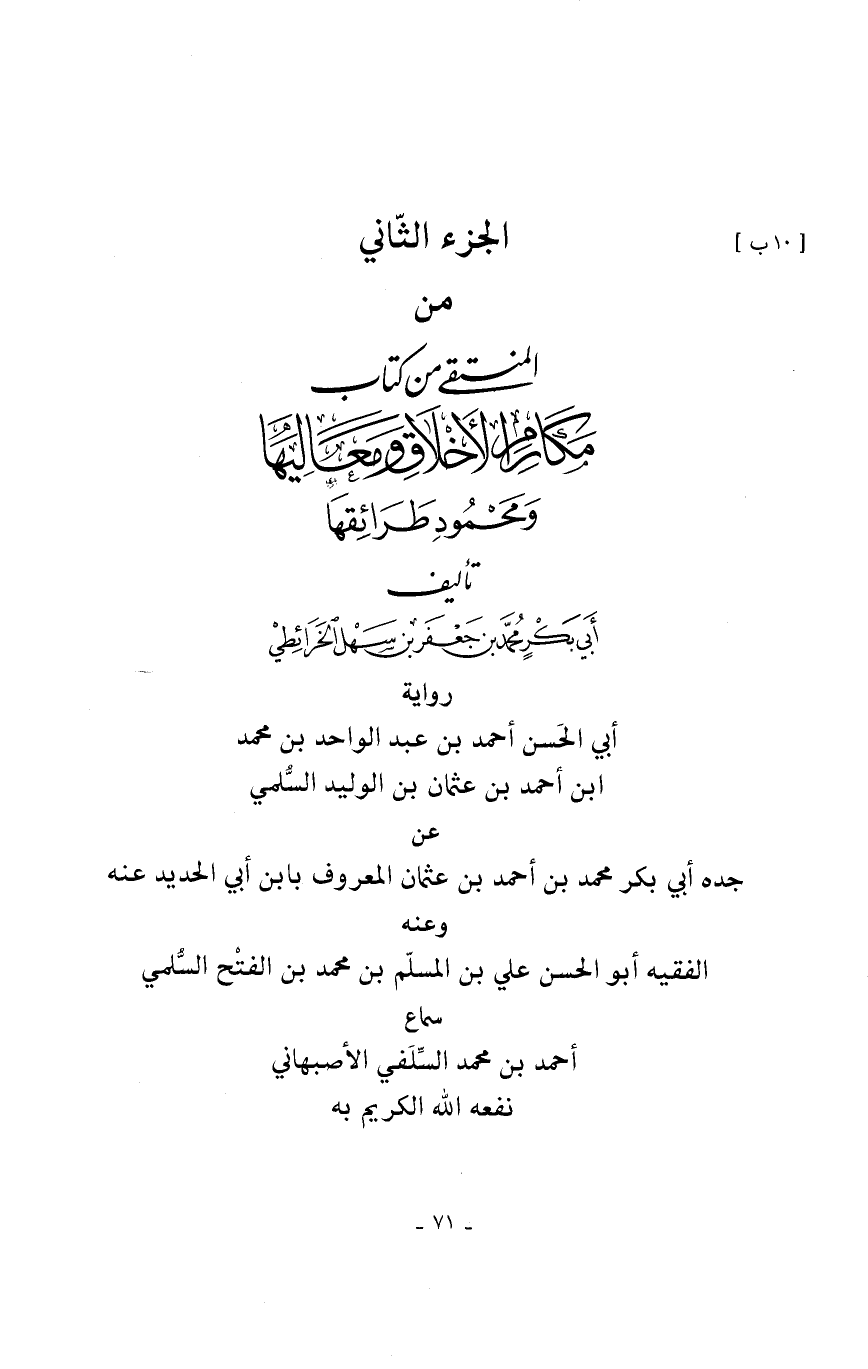 [ ١٠ ب ]
الجزء الثّاني
من
المنتقى من كتاب
مَكَارِم الأَخْلَاقِ وَمَعَالِيهَا
وَمَحْمُودِ طَرَائِقِهَا
تأليف
أَبِي بَكْرٍ مُحَمَّد بن جَعْفَر بْن سَهْل الخَرَائِطِيْ
رواية
أبي الحَسن أحمد بن عبد الواحد بن محمد
ابن أحمد بن عثمان بن الوليد السُّلمي
عن
جده أبي بكر محمد بن أحمد بن عثمان المعروف بابن أبي الحديد عنه
وعنه
الفقيه أبو الحسن علي بن المسلّم بن محمد بن الفتْح السُّلمي
سماع
أحمد بن محمد السِّلَفي الأصبهاني
نفعه الله الكريم به
- ٧١ -